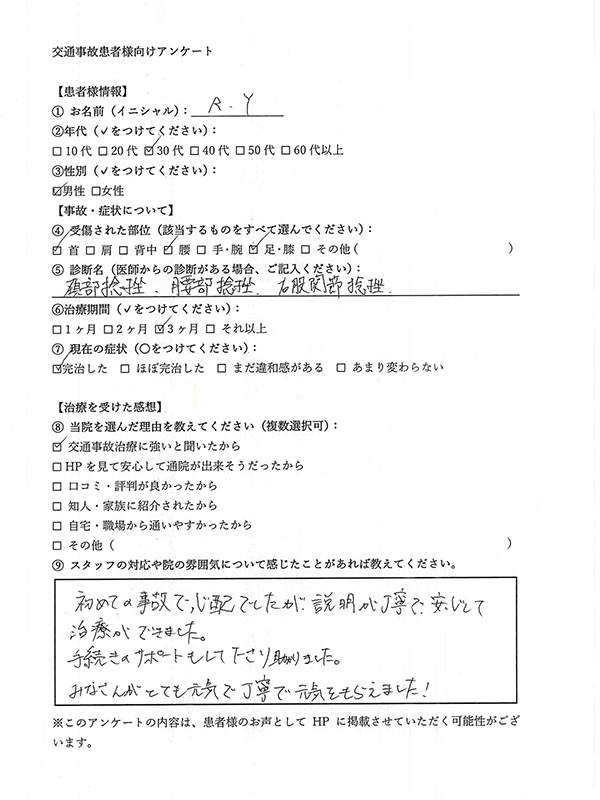 交通事故患者様向けアンケート
【患者様情報】
① お名前（イニシャル）： R.Y
②年代（✓をつけてください）：
□10代 □20代 ☑30代 □40代 □50代 □60代以上
③性別（✓をつけてください）：
☑男性 □女性
【事故・症状について】
④ 受傷された部位（該当するものをすべて選んでください）：
☑ 首 □ 肩 □ 背中 ☑ 腰 □ 手・腕 ☑ 足・膝 □ その他（ ）
⑤ 診断名（医師からの診断がある場合、ご記入ください）：
頚部捻挫、腰部捻挫、右股関節捻挫
⑥治療期間（✓をつけてください）：
□1ヶ月 □2ヶ月 ☑3ヶ月 □ それ以上
⑦ 現在の症状（〇をつけてください）：
☑完治した □ ほぼ完治した □ まだ違和感がある □ あまり変わらない
【治療を受けた感想】
⑧ 当院を選んだ理由を教えてください（複数選択可）：
☑ 交通事故治療に強いと聞いたから
□HPを見て安心して通院が出来そうだったから
□ 口コミ・評判が良かったから
□ 知人・家族に紹介されたから
□ 自宅・職場から通いやすかったから
□ その他（ ）
⑨ スタッフの対応や院の雰囲気について感じたことがあれば教えてください。
初めての事故で心配でしたが、説明が丁寧で安心して
治療ができました。
手続きのサポートもして下さり助かりました。
みなさんがとても元気で丁寧で元気をもらえました！
※このアンケートの内容は、患者様のお声として HP に掲載させていただく可能性がござ
います。